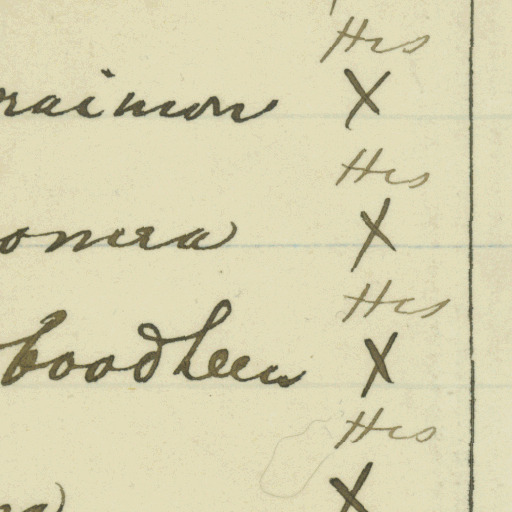 His
raimon X
His
omera X
His
boodheen X
His
X